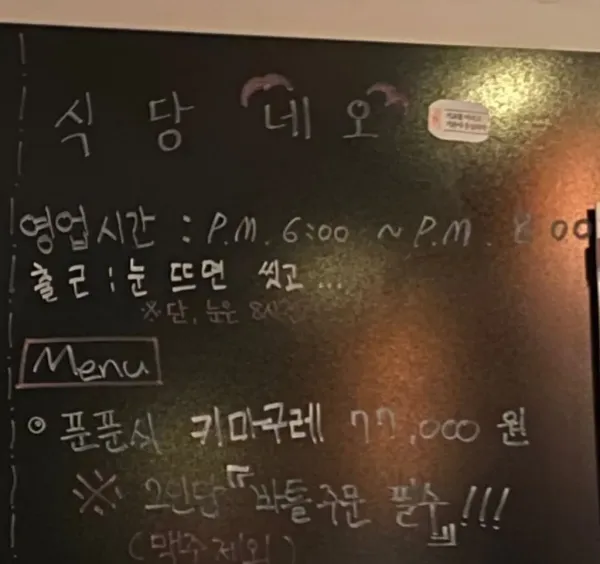 식당 네오
영업시간 : P.M. 6:00 ~ P.M. 8:00
출근 : 눈 뜨면 씻고 ...
※ 단, 눈은
Menu
⊙ 푼푼식 키마구레 77,000 원
※ 2인당 『바틀주문 필수』!!!
(맥주 제외)